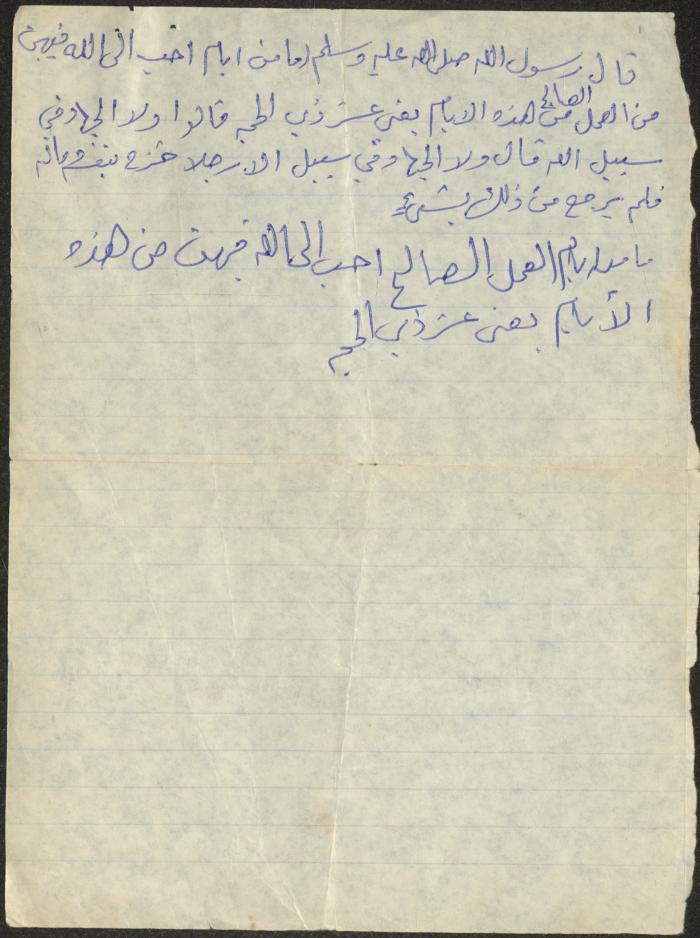 قال رسول الله صلى الله عليه وسلم (ما من ايام احب الى الله فيهن
من العمل الصالح من هذه الايام يعني عشر ذي الحجه قالوا ولا الجهاد في
سبيل الله قال ولا الجهاد في سبيل الا رجلا خرج بنفسه وماله
فلم يرجع من ذلك بشيء
ما من ايام العمل الصالح احب الى الله فيهن من هذه
الأيام يعني عشر ذي الحجه